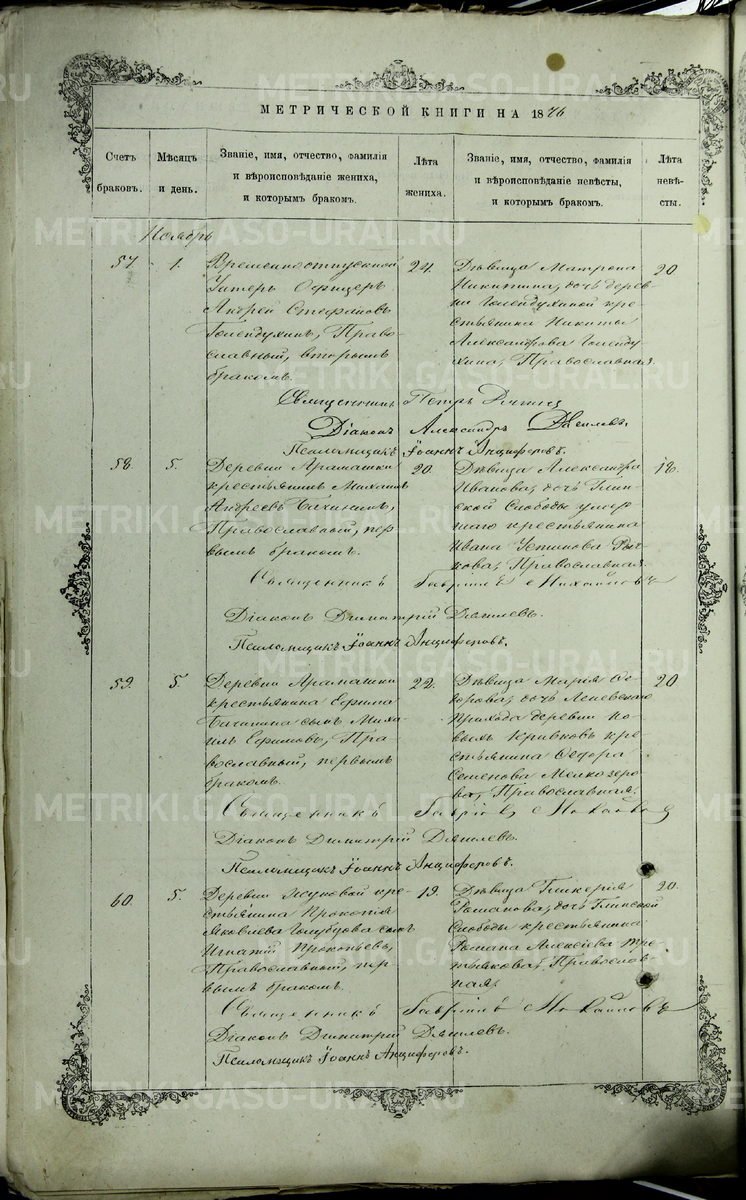 МЕТРИЧЕСКОЙ КНИГИ НА 1876
Счетъ браковъ.
Мѣсяцъ и день.
Званіе, имя, отчество, фамилія
и вѣроисповѣданіе жениха,
и которымъ бракомъ.
Лѣта жениха.
Званіе, имя, отчество, фамилія
и вѣроисповѣданіе невѣсты,
и которымъ бракомъ.
Лѣта невѣ-
сты.
Ноябрь
57. 1.
Временноотпускной
Унтеръ Офицеръ
Андрей Стефановъ
Голендухинъ, Право-
славный, вторымъ
бракомъ.
24.
Дѣвица Матрона
Никитина, дочь дерев-
ни Голендухиной кре-
стьянина Никиты
Александрова Голенду-
хина, Православная.
20
Священникъ Петръ
Діаконъ Александръ
Псаломщикъ Іоаннъ Анциферовъ.
58. 5.
Деревни Арамашки
крестьянинъ Михаилъ
Андреевъ Бачининъ,
Православный, пер-
вымъ бракомъ.
20.
Дѣвица Александра
Иванова, дочь Глин-
ской Слободы умер-
шаго крестьянина
Ивана Устинова Рыч-
кова, Православная.
18.
Священникъ Гавріилъ Михайловъ
Діаконъ Димитрій
Псаломщикъ Іоаннъ Анциферовъ.
59. 5.
Деревни Арамашки
крестьянина Ефима
Бачинина сынъ Миха-
илъ Ефимовъ, Пра-
вославный, первымъ
бракомъ.
22.
Дѣвица Марія Ѳе-
дорова, дочь Леневскаго
прихода деревни Но-
выхъ Кривковъ кре-
стьянина Ѳедора
Семенова Мелкозеро-
ва, Православная.
20
Священникъ Гавріилъ Михайловъ
Діаконъ Димитрій
Псаломщикъ Іоаннъ Анциферовъ.
60. 5.
Деревни Жуковой кре-
стьянина Прокопія
Яковлева Голубцова сынъ
Игнатій Прокопьевъ,
Православный, пер-
вымъ бракомъ.
19.
Дѣвица Гликерія
Романова, дочь Глинской
Слободы крестьянина
Романа Алексіева Тре-
тьякова, Православ-
ная,
20.
Священникъ Гавріилъ Михайловъ
Діаконъ Димитрій
Псаломщикъ Іоаннъ Анциферовъ.
METRIKI.GASO-URAL.RU